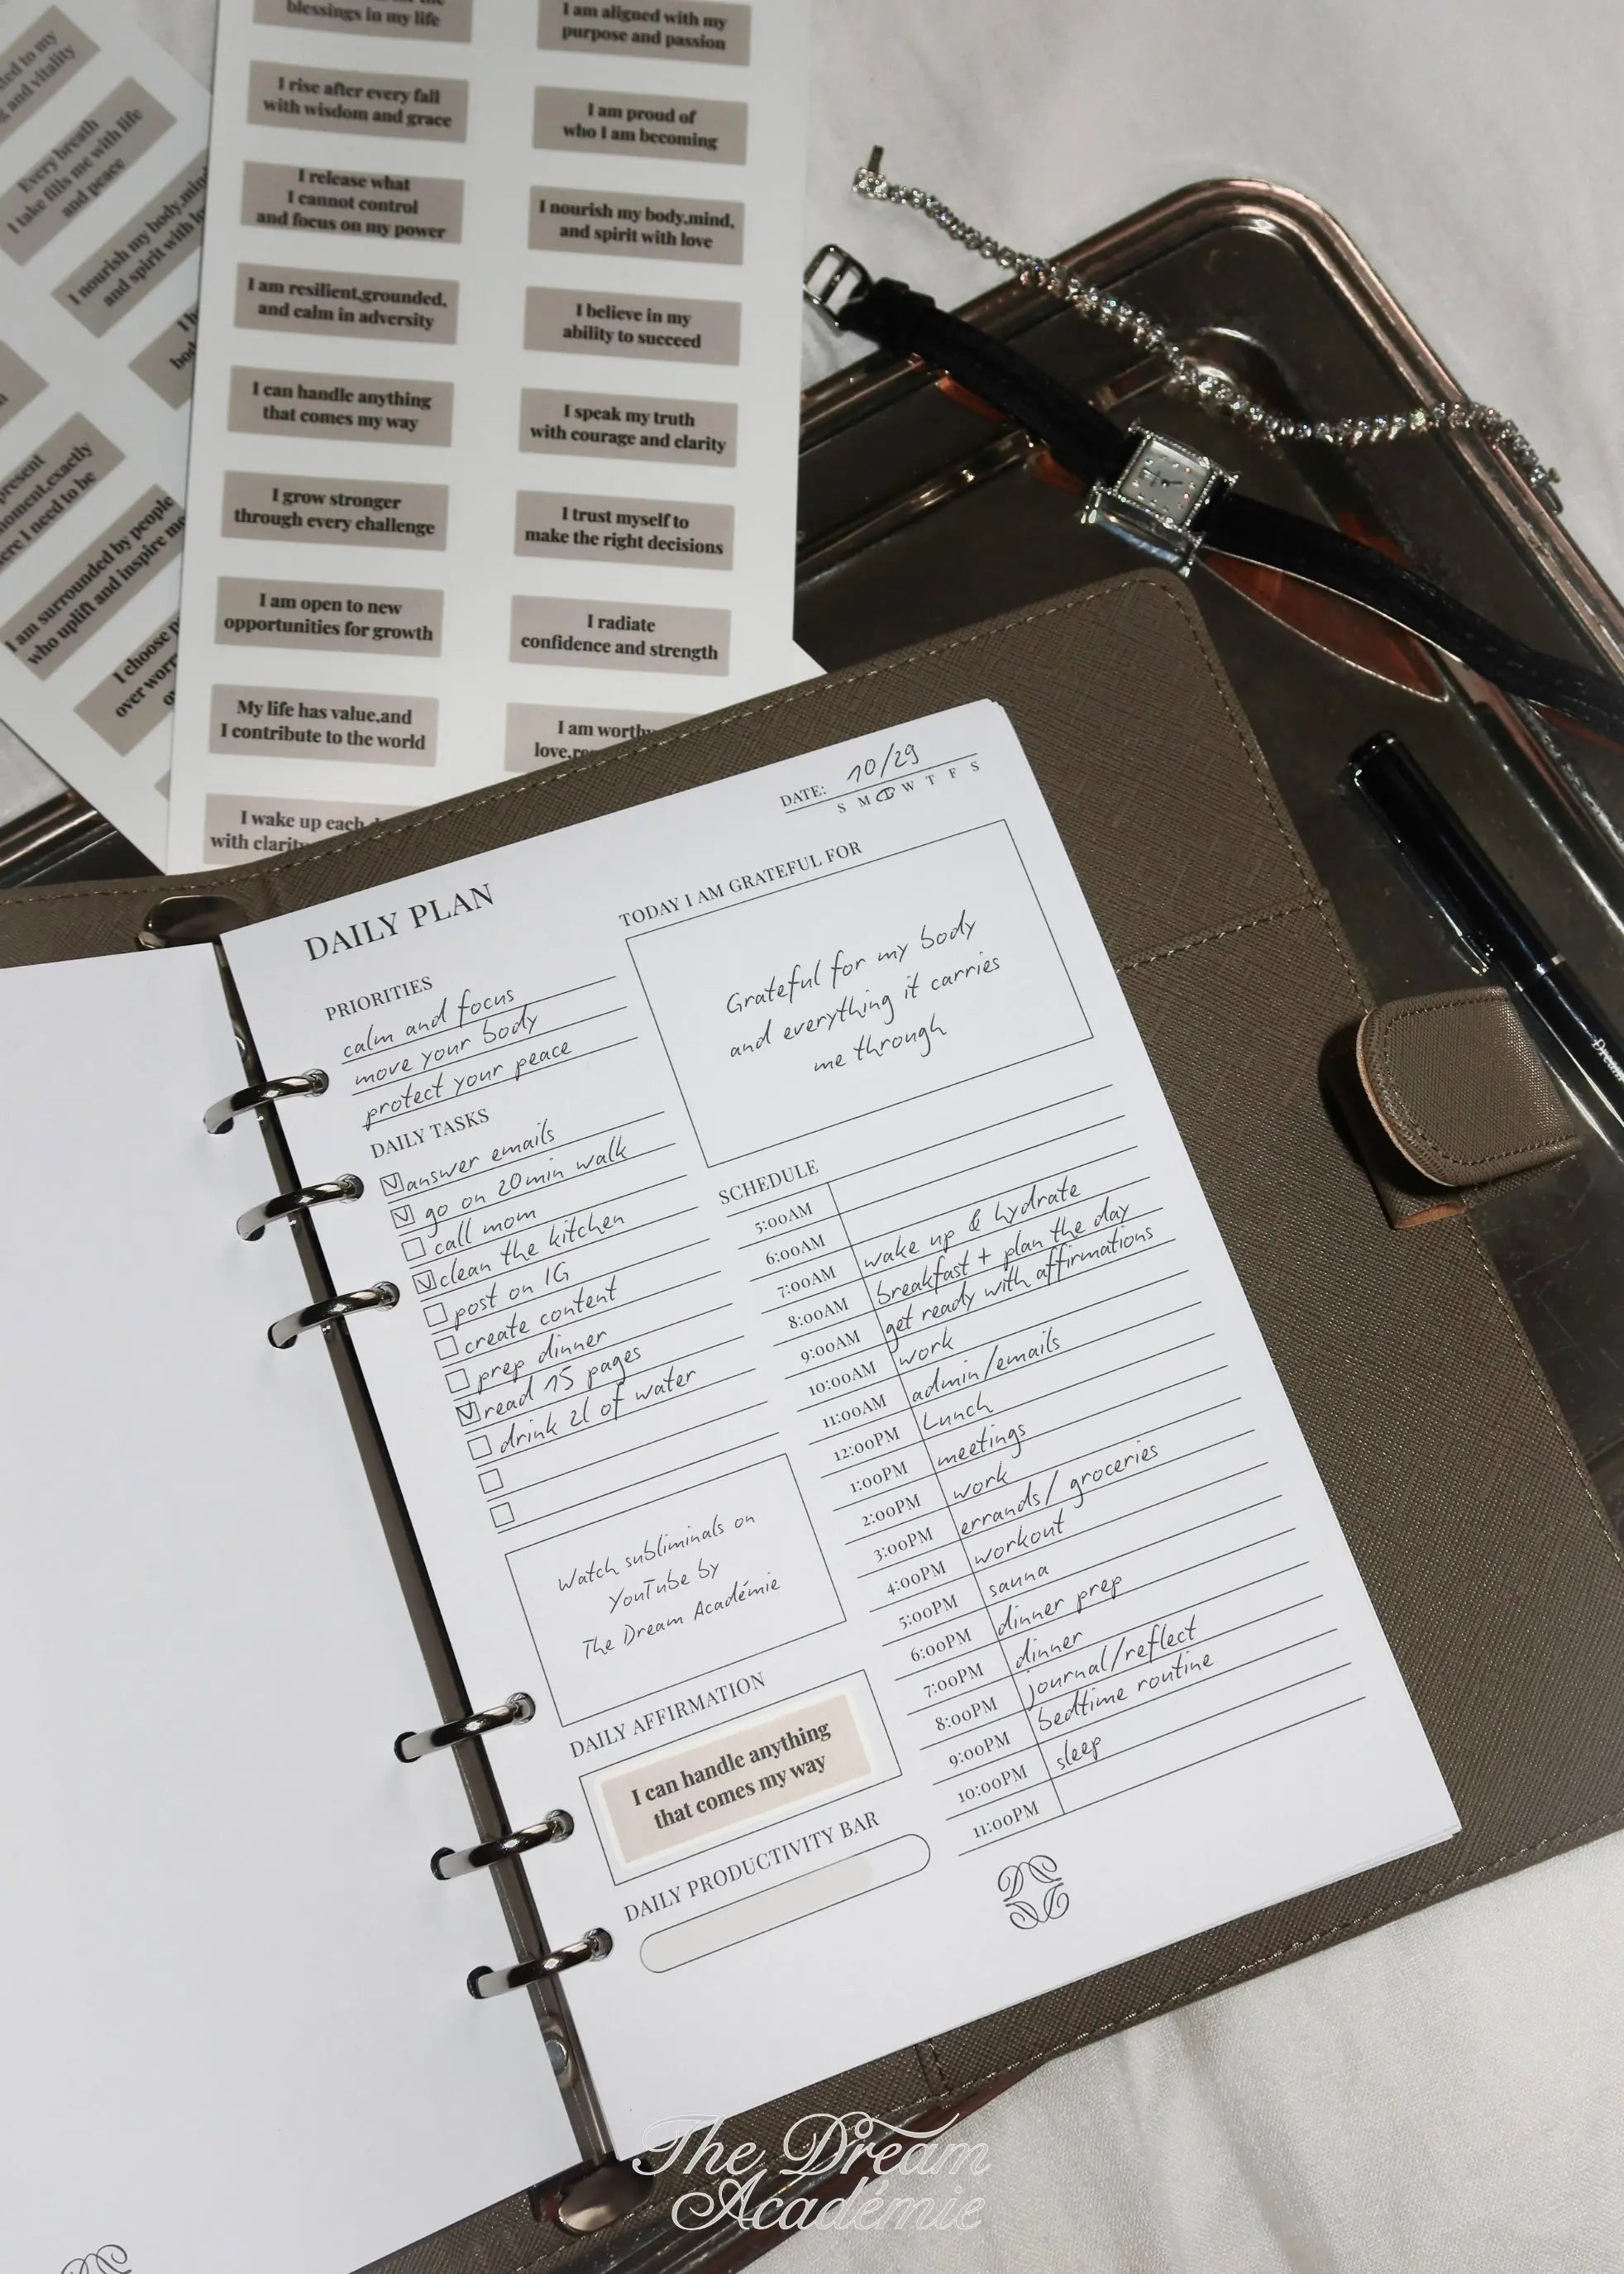 blessings in my life
I rise after every fall
with wisdom and grace
I release what
I cannot control
and focus on my power
I am resilient,grounded,
and calm in adversity
I can handle anything
that comes my way
I grow stronger
through every challenge
I am open to new
opportunities for growth
My life has value,and
I contribute to the world
I wake up each
with
I am aligned with my
purpose and passion
I am proud of
who I am becoming
I nourish my body,mind,
and spirit with love
I believe in my
ability to succeed
I speak my truth
with courage and clarity
I trust myself to
make the right decisions
I radiate
confidence and strength
I am
love,
to my
and vitality
Every breath
I take fills me with life
and peace
I nourish my body,mind
and spirit with
exactly
I need to be
I am surrounded by people
who uplift and inspire me
I choose
over
DAILY PLAN
DATE: 10/29
S M T W T F S
PRIORITIES
calm and focus
move your body
protect your peace
DAILY TASKS
answer emails
go on 20min walk
call mom
clean the kitchen
post on IG
create content
prep dinner
read 15 pages
drink 2l of water
Watch subliminals on
YouTube by
The Dream Académie
DAILY AFFIRMATION
I can handle anything
that comes my way
DAILY PRODUCTIVITY BAR
TODAY I AM GRATEFUL FOR
Grateful for my body
and everything it carries
me through
SCHEDULE
5:00AM
6:00AM
7:00AM wake up & hydrate
8:00AM breakfast + plan the day
9:00AM get ready with affirmations
10:00AM work
11:00AM admin/emails
12:00PM Lunch
1:00PM meetings
2:00PM work
3:00PM errands/ groceries
4:00PM workout
5:00PM sauna
6:00PM dinner prep
7:00PM dinner
8:00PM journal/reflect
9:00PM bedtime routine
10:00PM sleep
11:00PM
The Dream
Académie